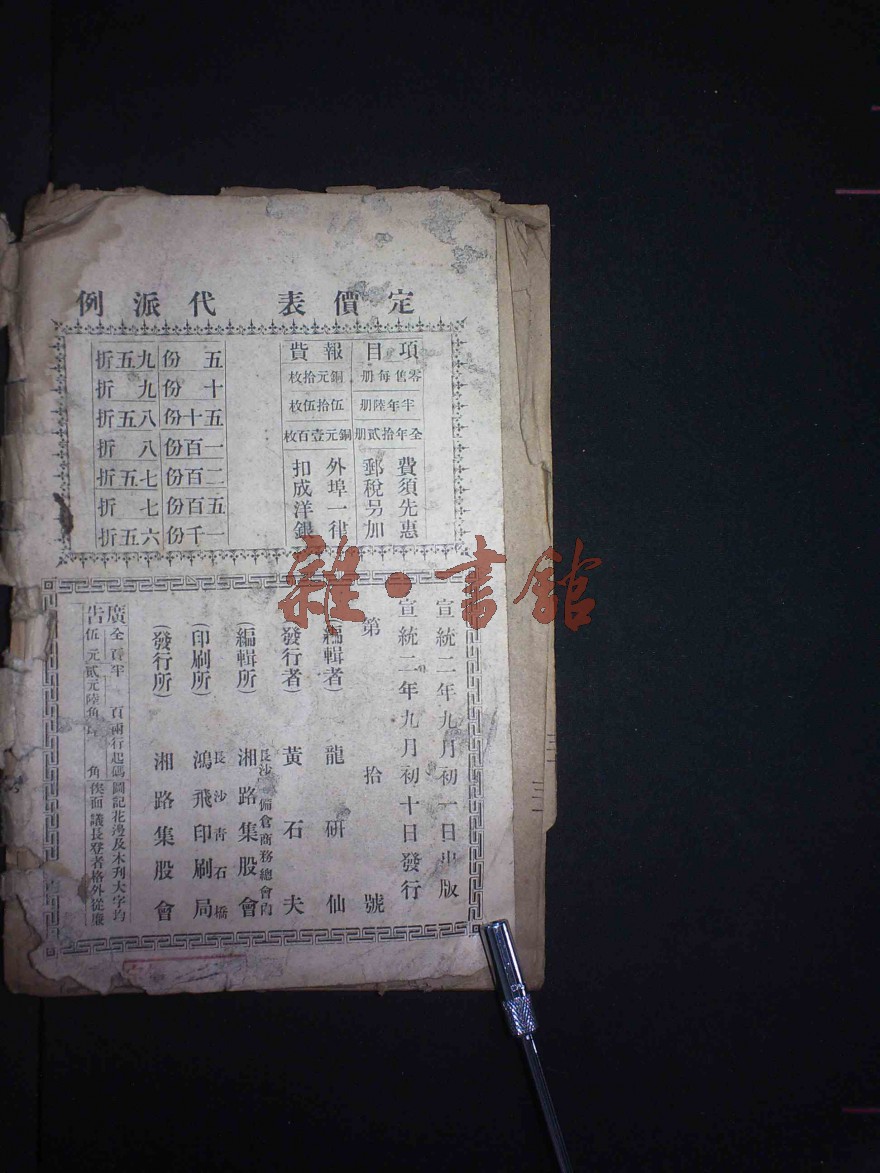 定價表　代派例
項目　報費
零售每册　銅元拾枚
半年陸册　伍拾伍枚
全年拾貳册　銅元壹百枚
費須先惠
郵稅另加
外埠一律
扣成洋銀
五份　九五折
十份　九折
五十份　八五折
一百份　八折
二百份　七五折
五百份　七折
一千份　六五折
雜·書館
宣統二年九月初一日出版
宣統二年九月初十日發行
第拾號
編輯者　龍研仙
發行者　黃石夫
(編輯所)　長沙　倉商務總會內　湘路集股會
(印刷所)　長沙青石橋　鴻飛印刷局
(發行所)　湘路集股會
廣告
全頁　半頁　兩行起碼　圖記花邊及木刋大字均
伍元　貳元陸角　角　俟面議長登者格外從廉